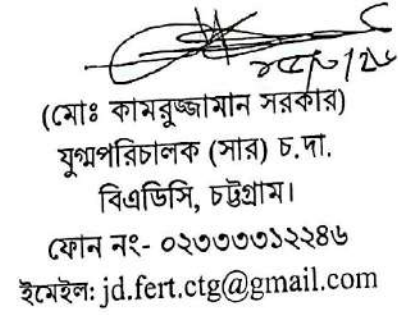 (মোঃ কামরুজ্জামান সরকার)
যুগ্মপরিচালক (সার) চ.দা.
বিএডিসি, চট্টগ্রাম।
ফোন নং- ০২৩৩৩৩১২২৪৬
ইমেইল: jd.fert.ctg@gmail.com